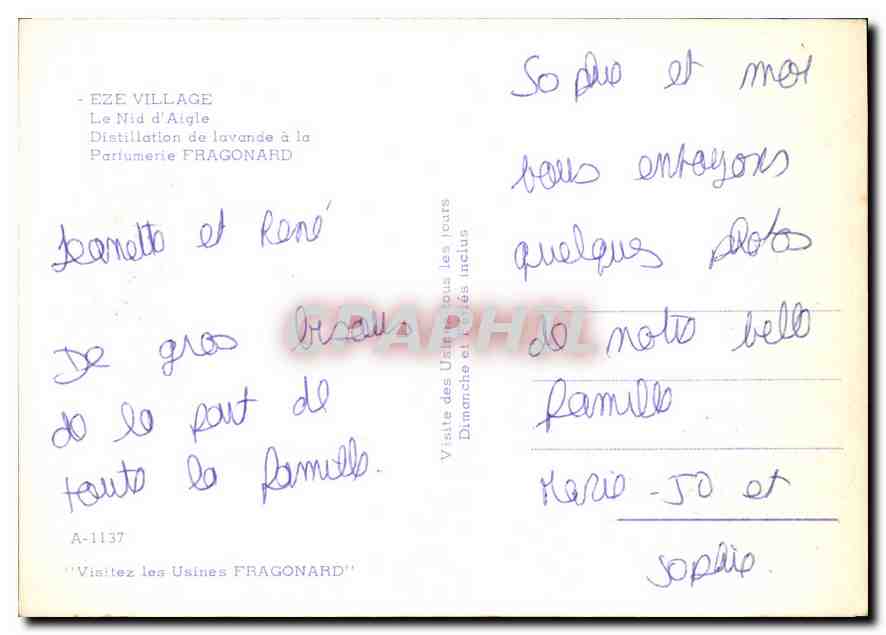 - EZE VILLAGE
Le Nid d'Aigle
Distillation de lavande à la
Parfumerie FRAGONARD
Jeanette et René
De gros bisous
de la part de
toute la famille.
A-1137
"Visitez les Usines FRAGONARD"
Visite des Usines tous les jours
Dimanche et Fériés inclus
CPAPHIL
Sophie et moi
vous envoyons
quelques photos
de notre belle
famille
Marie-JO et
Sophie.